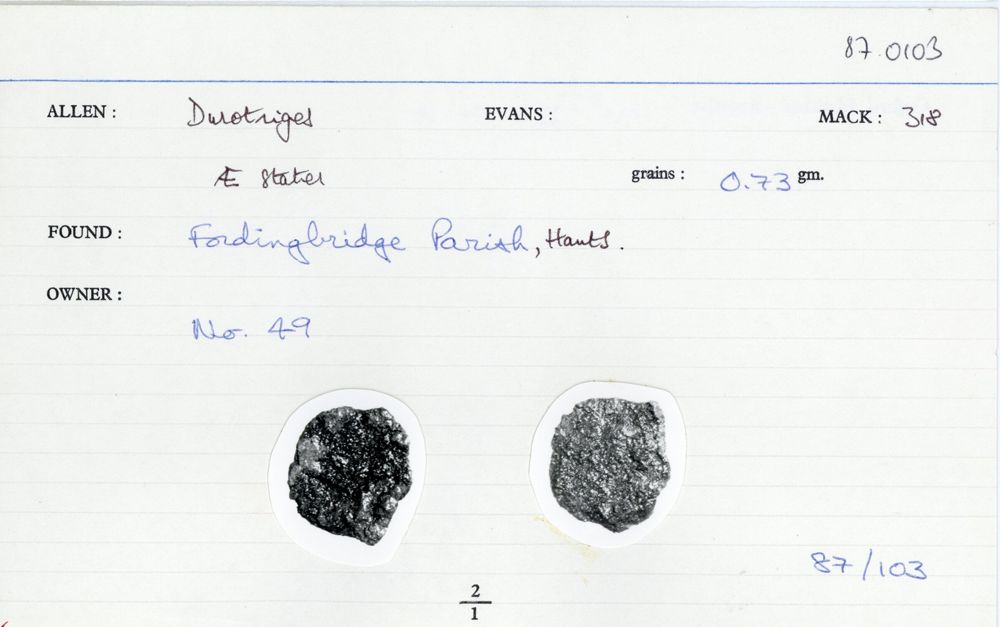 87.0103
ALLEN : Durotriges EVANS : MACK : 318
Æ Stater grains : 0.73 gm.
FOUND : Fordingbridge Parish, Hants.
OWNER :
No. 49
87/103
2
1